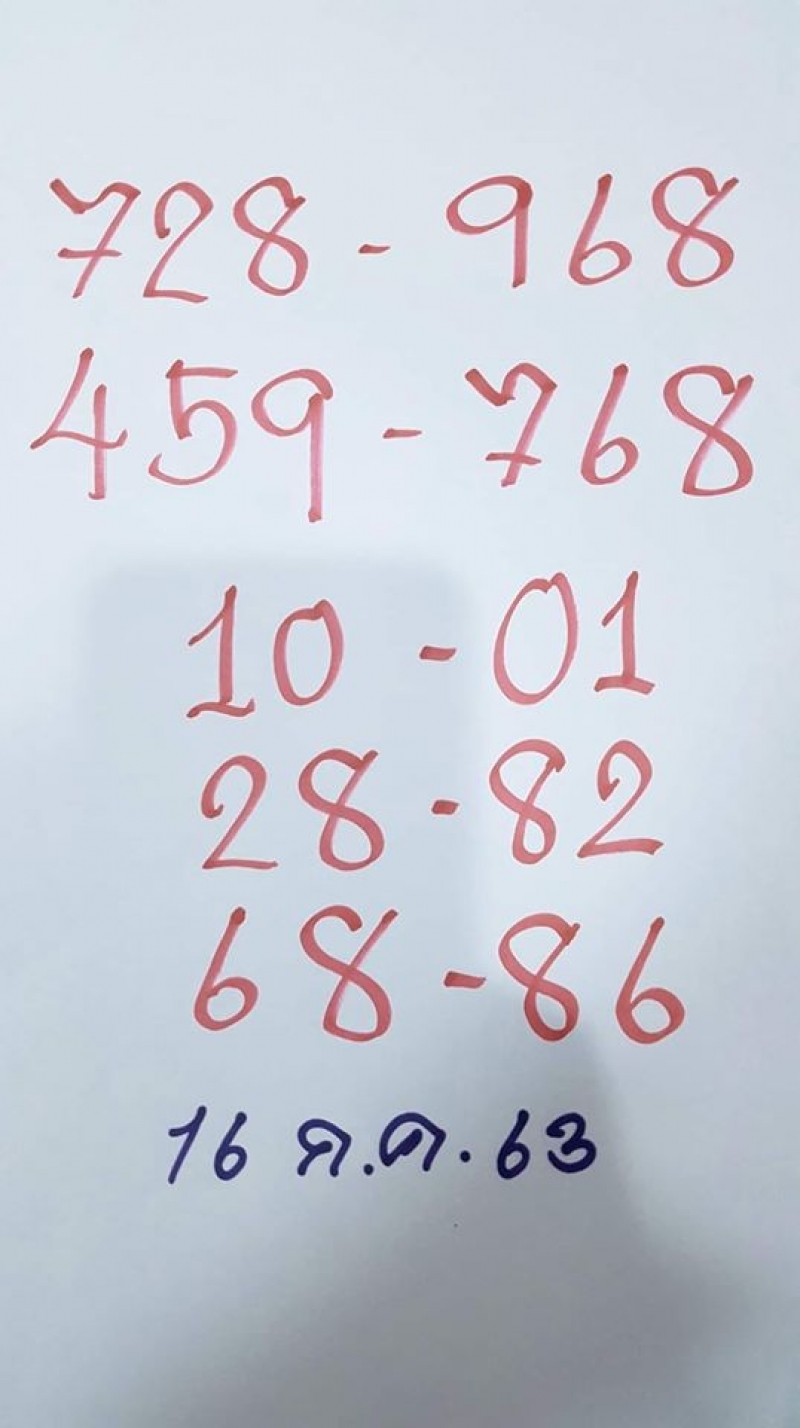 728 - 968
459 - 768
10 - 01
28 - 82
68 - 86
16 ก.ค. 63